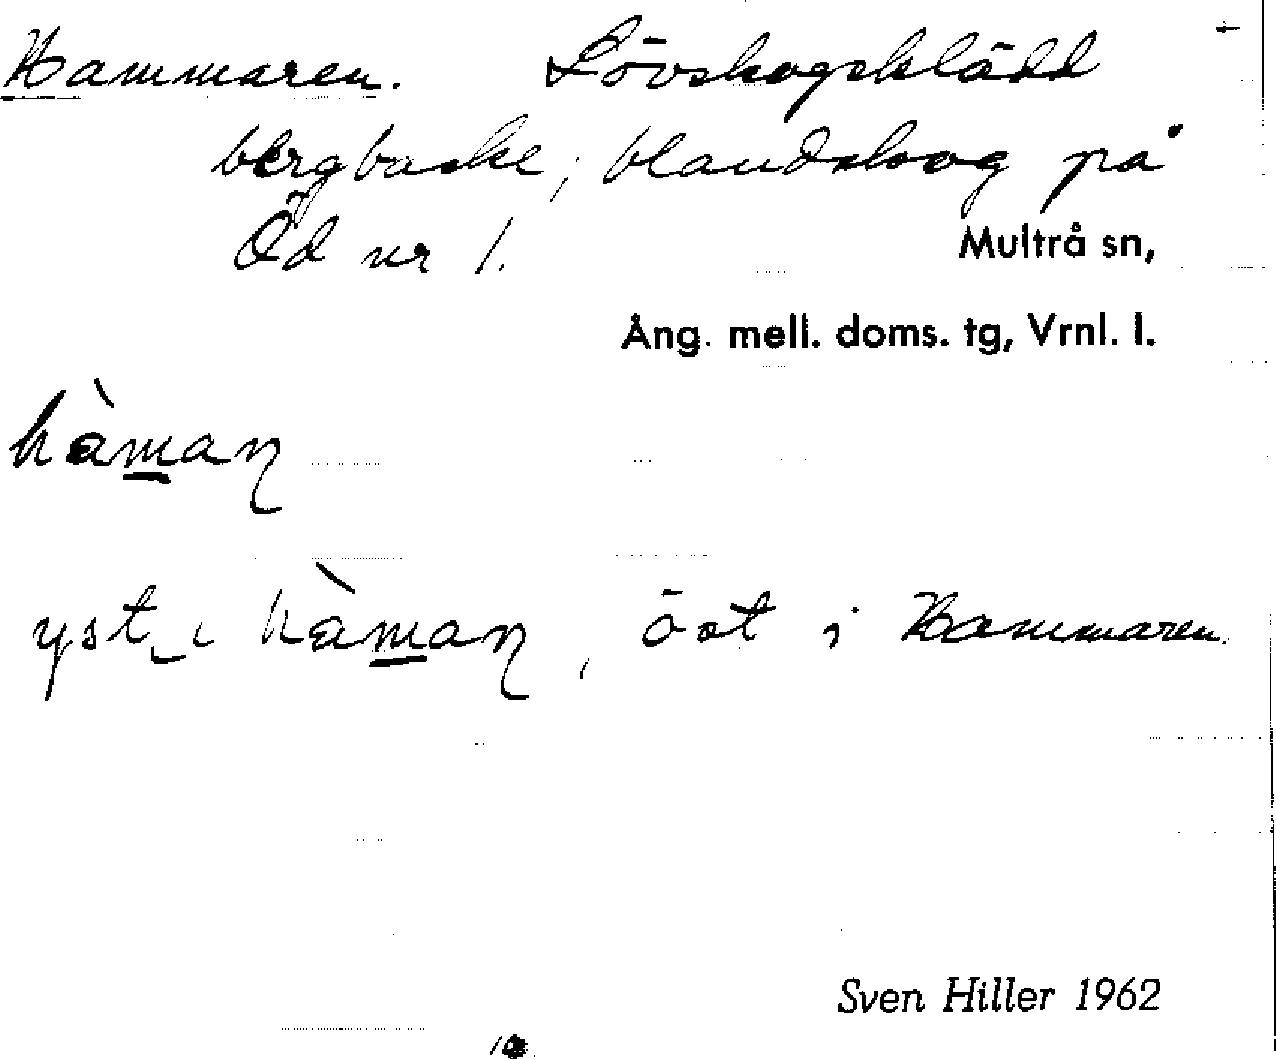 Hammaren. Lövskogsklädd
bergbacke; blandskog på
Öd nr 1.
Multrå sn,
Ång. mell. doms. tg, Vrnl. l.
hàman̡
yst‿i hàman̡, öst i Hammaren.
Sven Hiller 1962